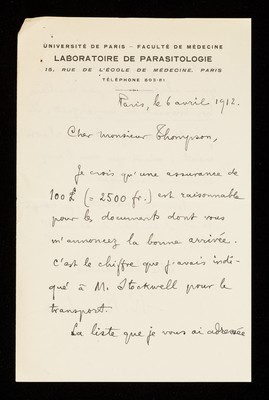 UNIVERSITÉ DE PARIS - FACULTÉ DE MÉDECINE
LABORATOIRE DE PARASITOLOGIE
15, RUE DE L'ÉCOLE DE MÉDECINE, PARIS
TÉLÉPHONE 803-81
Paris, le 6 avril 1912.
Cher monsieur Thompson,
Je crois qu'une assurance de
100 £ (= 2500 fr.) est raisonnable
pour les documents dont vous
m'annoncez la bonne arrivée.
C'est le chiffre que j'avais indi-
qué à M. Stockwell pour le
transport.
La liste que je vous ai adressée